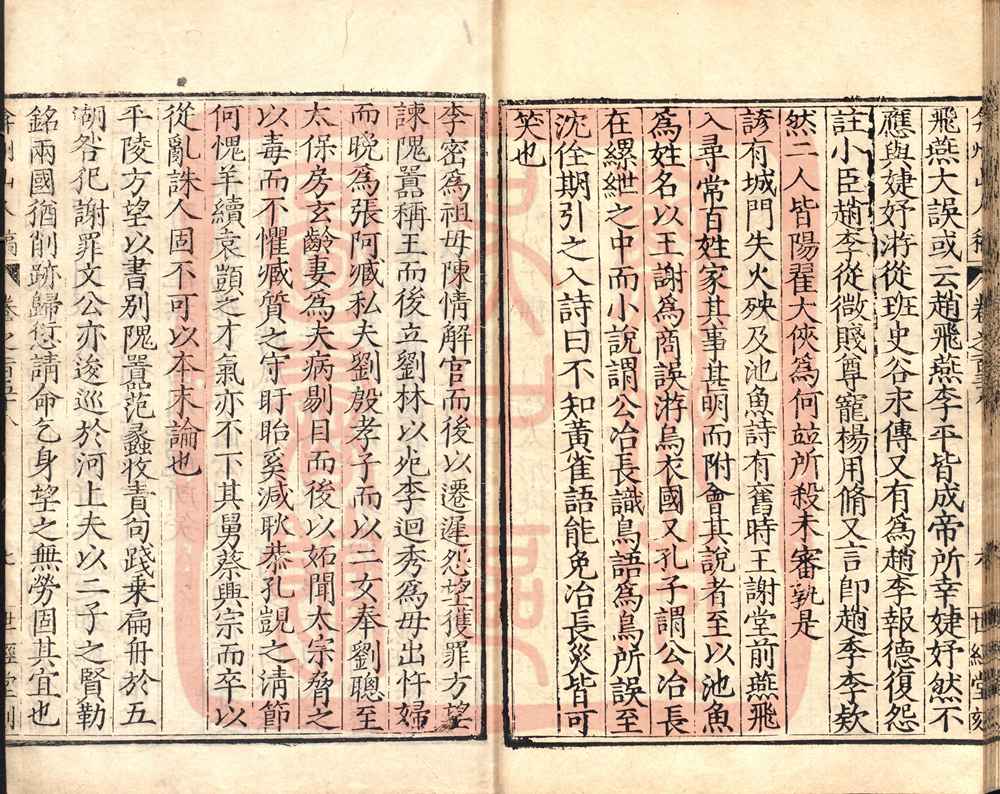 飛燕大誤或云趙飛燕李平皆成帝所幸婕妤然不
應與婕妤游從班史谷永傳又有爲趙李報德復怨
註小臣趙李從微賤尊寵楊用脩又言卽趙季李欵
然二人皆陽翟大俠爲何並所殺未審孰是
諺有城門失火殃及池魚詩有舊時王謝堂前燕飛
入尋常百姓家其事甚明而附會其說者至以池魚
爲姓名以王謝爲商誤游烏衣國又孔子謂公冶長
在縲紲之中而小說謂公冶長識鳥語爲鳥所誤至
沈佺期引之入詩曰不知黃雀語能免冶長災皆可
笑也
世經堂刻
李密爲祖母陳情解官而後以遷遲怨望獲罪方望
諫隗囂稱王而後立劉林以死李迴秀爲母出忤婦
而晚爲張阿臧私夫劉殷孝子而以二女奉劉聰至
太保房玄齡妻爲夫病剔目而後以妬聞太宗脅之
以毒而不懼臧質之守盱眙奚減耿恭孔覬之清節
何愧羊續袁顗之才氣亦不下其舅蔡興宗而卒以
從亂誅人固不可以本末論也
平陵方望以書別隗囂范蠡收責句踐乘扁舟於五
湖咎犯謝罪文公亦逡巡於河上夫以二子之賢勒
銘兩國猶削跡歸愆請命乞身望之無勞固其宜也
世經堂刻